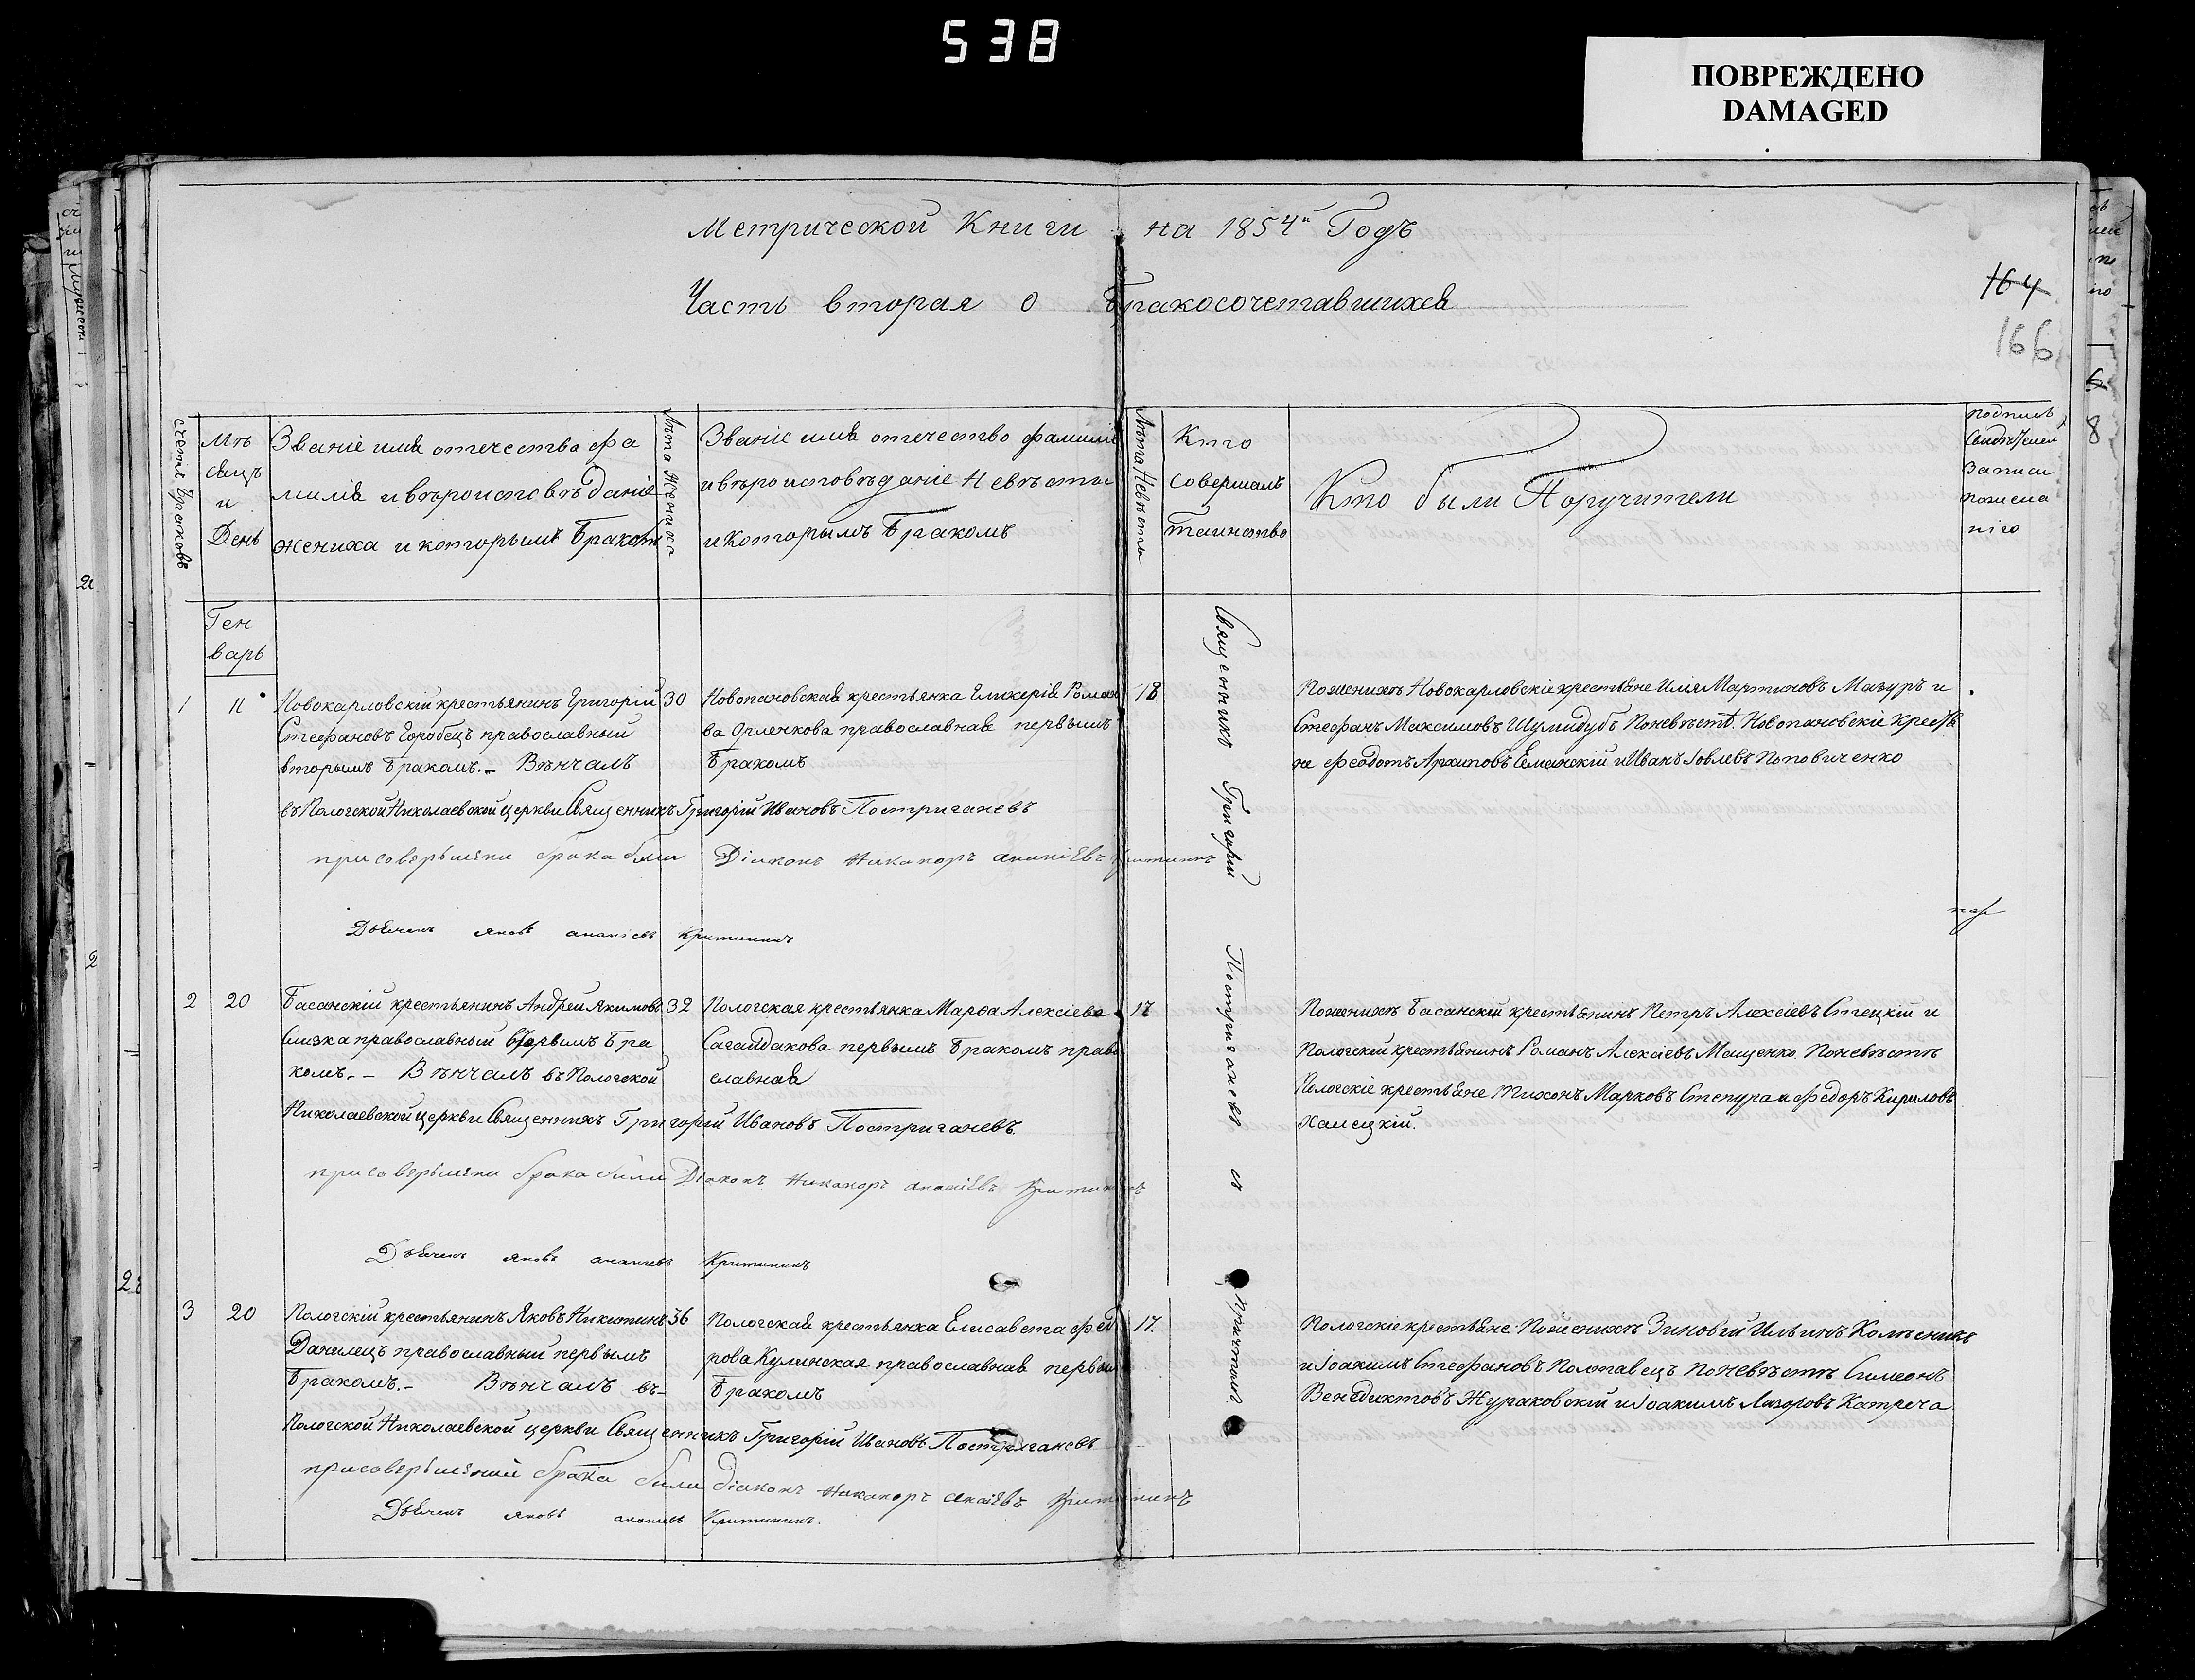 538
ПОВРЕЖДЕНО
DAMAGED
Метрической Книги на 1854й Годъ
Часть вторая о Бракосочетавшихся
164
166
счетъ Браковъ
Мѣ
сяцъ
и
День
Званіе имя отечество фа
милія и вѣроисповѣданіе
жениха и которымъ Бракомъ
Лѣта Жениха
Званіе имя отечество фамилія
и вѣроисповѣданіе Невѣсты
и Которымъ Бракомъ
Лѣта Невѣсты
Кто
совершалъ
таинство
Кто были Поручители
подпись
свидѣтелей
записи
по желa
нію
Ген
варь
1
11
Новокарловскій крестьянинъ Григорій
Стефановъ Горобецъ православный
вторымъ Бракомъ. - Вѣнчалъ
въ Пологской Николаевской церкви Священникъ Григорій Ивановъ Постриганевъ
при соверьшени брака были Діаконъ Никаноръ ананіевъ Критининъ
Дьячекъ яковъ ананіевъ Критининъ
30
Новопановская крестьянка Гликерія Рома
ва Орленкова православная первымъ
Бракомъ
18
Священникъ Григорій Постриганевъ съ причтомъ.
По женихѣ Новокарловскіе крестьяне Илія Мартиновъ Мазуръ и
Стефанъ Максимовъ Шумидубъ По невѣстѣ. Новопановскіе крестья
не Феодотъ Архиповъ Еманскій и Иванъ Іовлевъ Поповиченко
2
20
Басанскій крестьянинъ Андрей Якимовъ
Слизка православный первымъ Бра
комъ. - Вѣнчалъ въ Пологской
Николаевской церкви Священникъ Григорій Ивановъ Постриганевъ.
при соверьшени брака были Діаконъ Никаноръ ананіевъ Критининъ
Дьячекъ яковъ ананіевъ Критининъ
32
Пологская крестьянка Марѳа Алексіева
Сагайдакова первымъ Бракомъ право
славная
17
По женихѣ Басанскій крестьянинъ Петръ Алексіевъ Стецкій и
Пологскій крестьянинъ Романъ Алексіевъ Мащенко. По невѣстѣ
Пологскіе крестьяне Тихонъ Марковъ Степура и Федоръ Кириловъ
Халецкій.
3
20
Пологскій крестьянинъ Яковъ Никитинъ
Данилецъ православный первымъ
Бракомъ. - Вѣнчалъ въ
Пологской Николаевской церкви Священникъ Григорій Ивановъ Постриганевъ
при соверьшеній брака были діаконъ Никаноръ ананіевъ Критининъ
Дьячекъ яковъ ананіевъ Критининъ.
36
Пологская крестьянка Елисавета Фед
рова Кулинская православная первым
Бракомъ
17.
Пологскіе крестьяне По женихѣ Зиновій Ильинъ Колѣсникъ
и Іоакимъ Стефановъ Полтавецъ По невѣстѣ Симеонъ
Венедиктовъ Жураковскій и Іоакимъ Лазоровъ Катреча